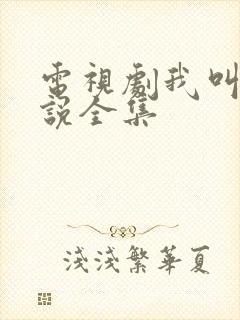 電視劇我叫
說全集
淺淺繁華夏